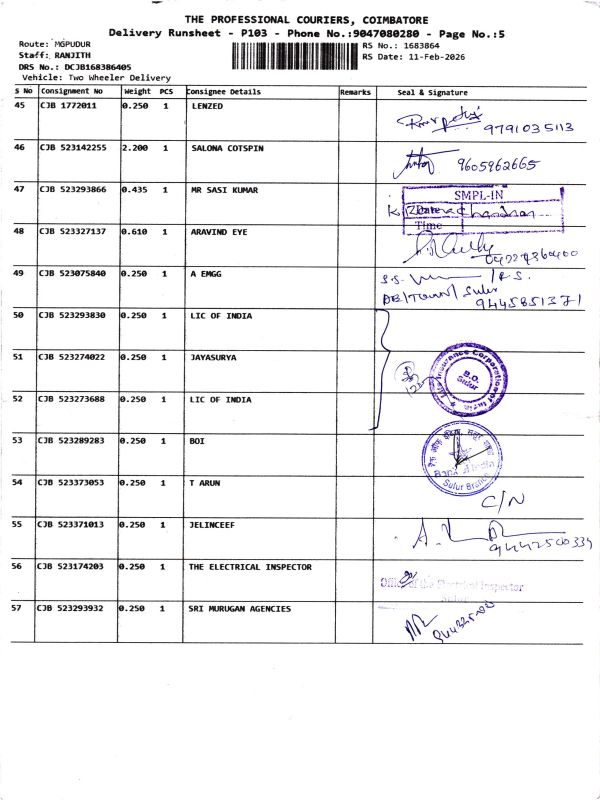 THE PROFESSIONAL COURIERS, COIMBATORE
Delivery Runsheet - P103 - Phone No.:9047080280 - Page No.:5
Route: MGPUDUR
RS No.: 1683864
Staff: RANJITH
RS Date: 11-Feb-2026
DRS No.: DCJB168386405
Vehicle: Two Wheeler Delivery
S No Consignment No Weight PCS Consignee Details Remarks Seal & Signature
45 CJB 1772011 0.250 1 LENZED
9791035113
46 CJB 523142255 2.200 1 SALONA COTSPIN
9605962665
47 CJB 523293866 0.435 1 MR SASI KUMAR
SMPL-IN
Time
48 CJB 523327137 0.610 1 ARAVIND EYE
49 CJB 523075840 0.250 1 A EMGG
Sulur
9445851371
50 CJB 523293830 0.250 1 LIC OF INDIA
51 CJB 523274022 0.250 1 JAYASURYA
Life Insurance Corporation of India
B.O.
Sulur
52 CJB 523273688 0.250 1 LIC OF INDIA
53 CJB 523289283 0.250 1 BOI
Bank of India
Sulur Branch
54 CJB 523373053 0.250 1 T ARUN
C/N
55 CJB 523371013 0.250 1 JELINCEEF
56 CJB 523174203 0.250 1 THE ELECTRICAL INSPECTOR
Office of the Electrical Inspector
Sulur
57 CJB 523293932 0.250 1 SRI MURUGAN AGENCIES